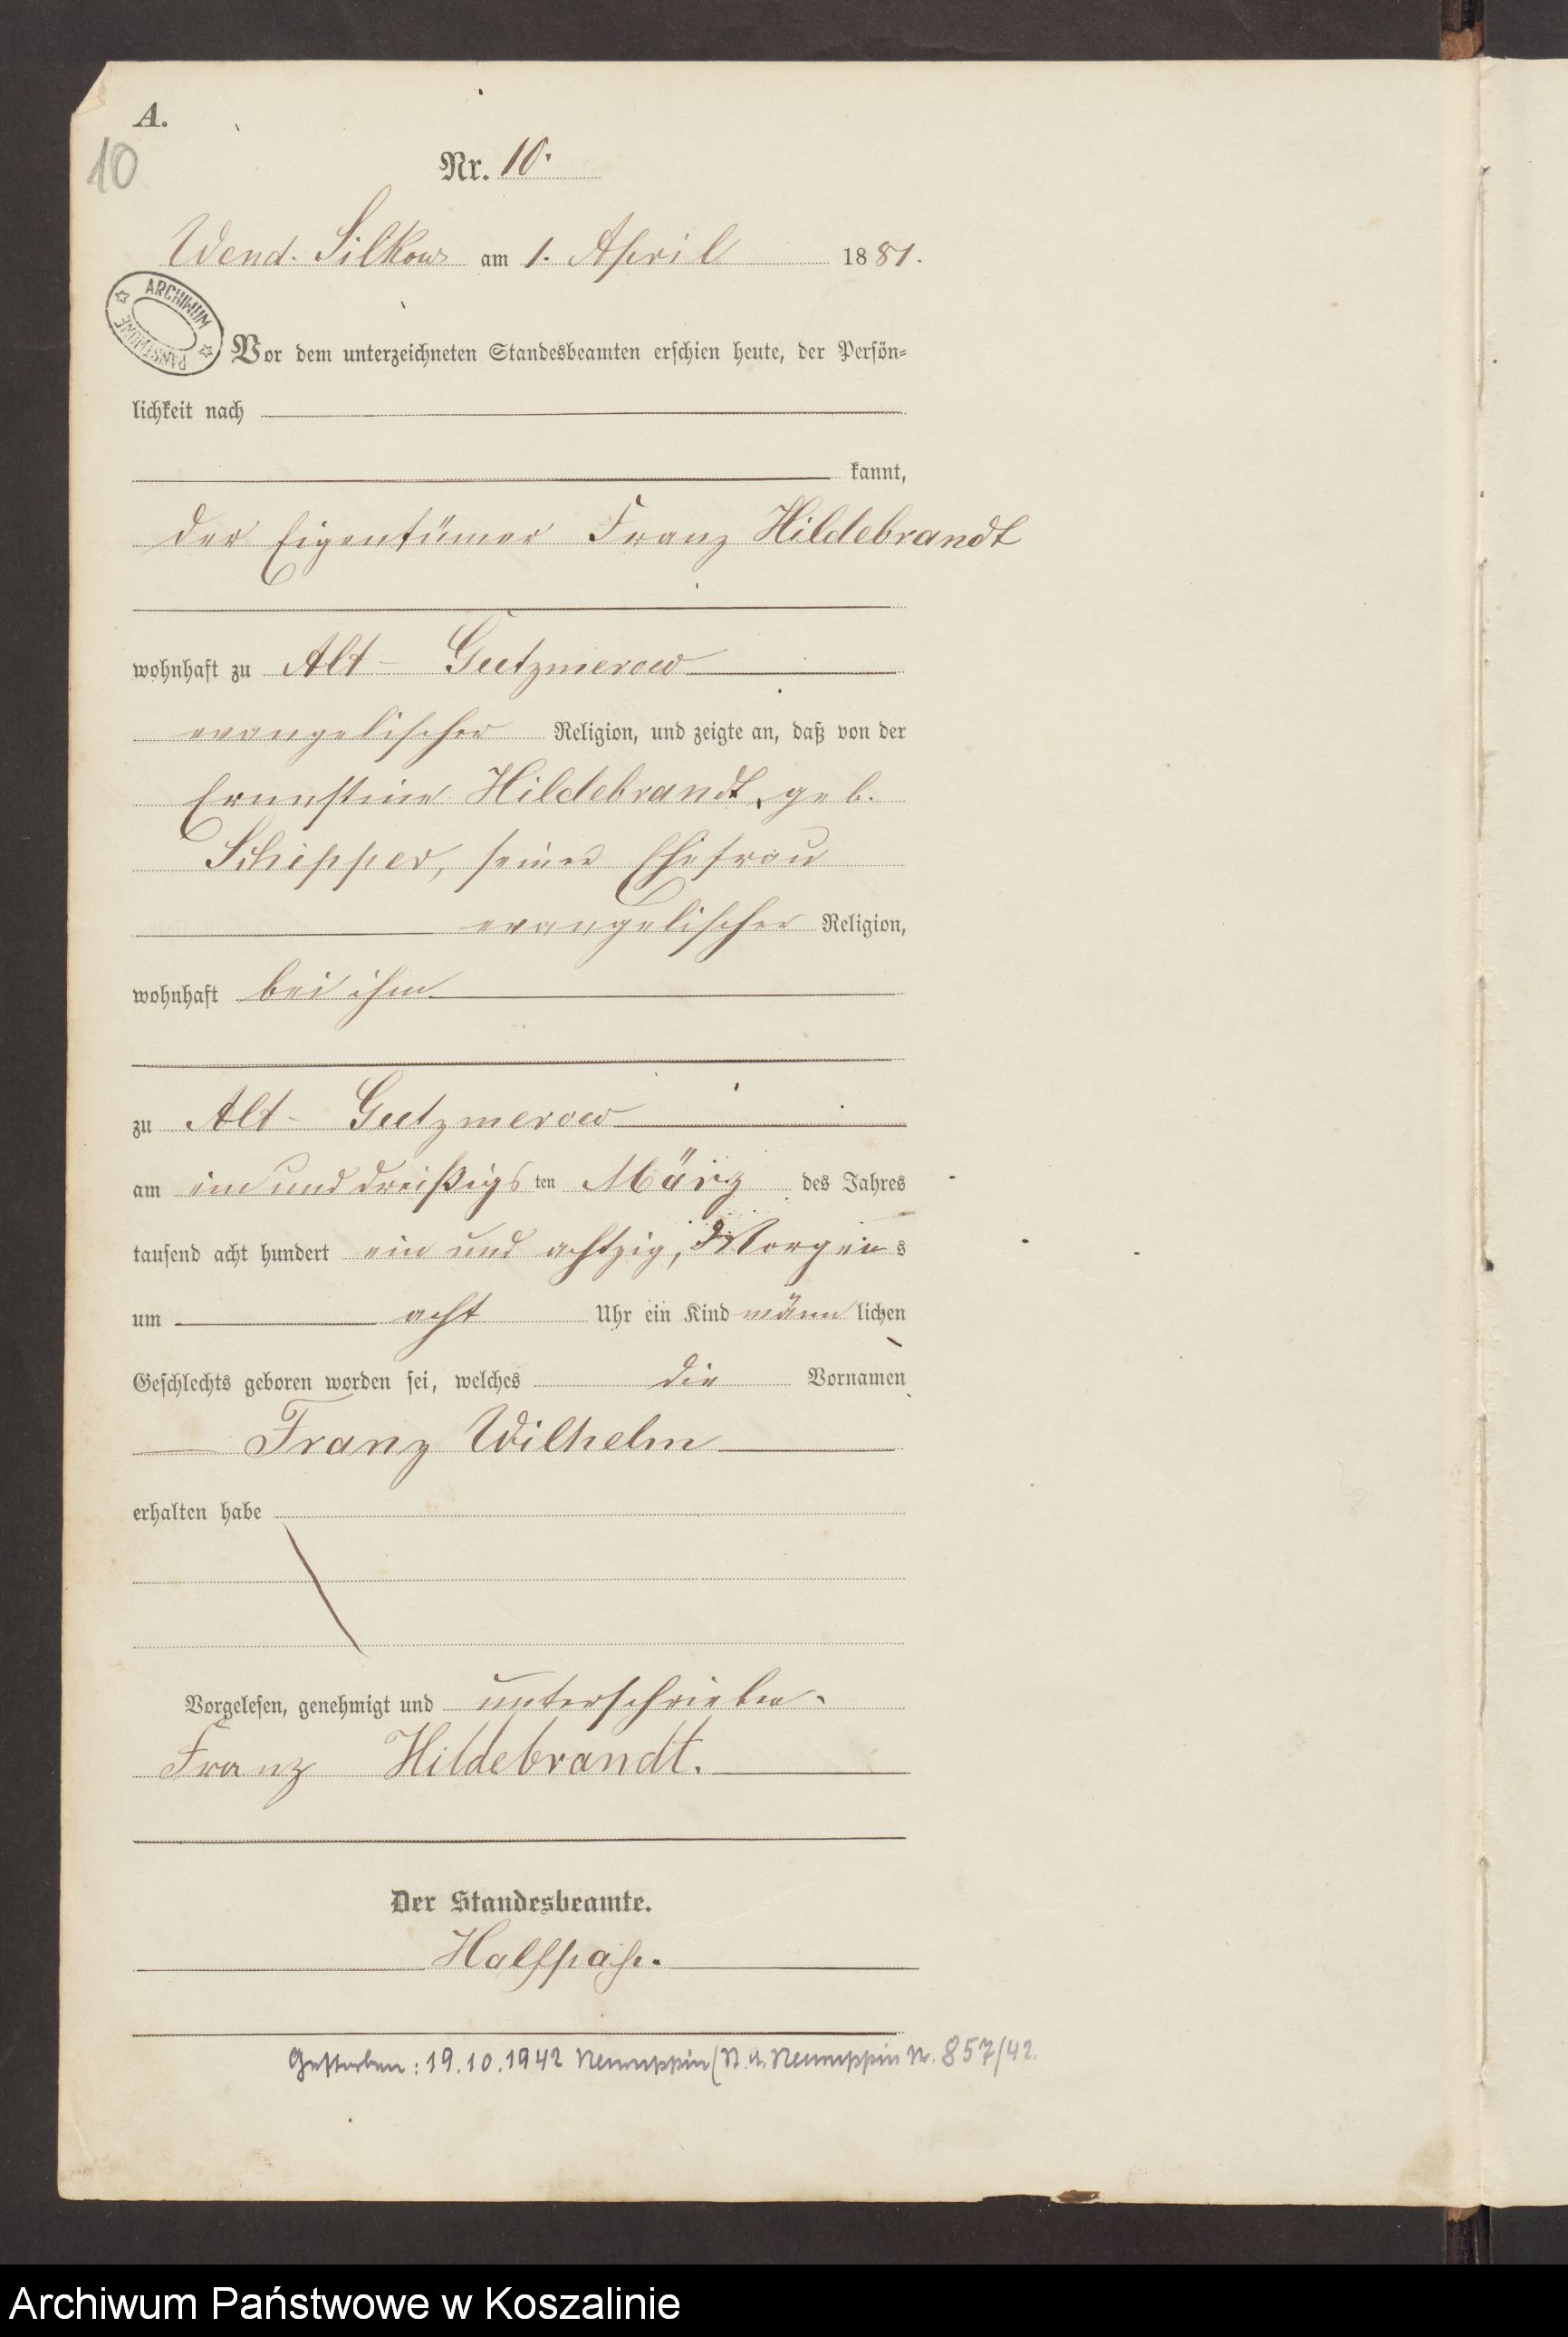 A.
10
Nr. 10.
Wend. Silkow am 1. April 1881.
ARCHIWUM PAŃSTWOWE
Vor dem unterzeichneten Standesbeamten erschien heute, der Persön=
lichkeit nach
kannt,
der Eigentümer Franz Hildebrandt
wohnhaft zu Alt- Gutzmerow
evangelischer Religion, und zeigte an, daß von der
Ernestine Hildebrandt, geb.
Schipper, seiner Ehefrau
evangelischer Religion,
wohnhaft bei ihm
zu Alt- Gutzmerow
am ein und dreißigsten März des Jahres
tausend acht hundert ein und achtzig, Morgens
um acht Uhr ein Kind männlichen
Geschlechts geboren worden sei, welches die Vornamen
Franz Wilhelm
erhalten habe
Vorgelesen, genehmigt und unterschrieben.
Franz Hildebrandt.
Der Standesbeamte.
Halfpap.
Gestorben: 19.10.1942 Neuruppin (St. A. Neuruppin Nr. 857/42.
Archiwum Państwowe w Koszalinie